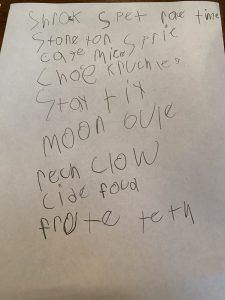 Shrok Spet fae time
Stone ton
case Mice Sprie
Choe Kruchies
Stay fix
moon oule
rech clow
Cide foud
frote teth